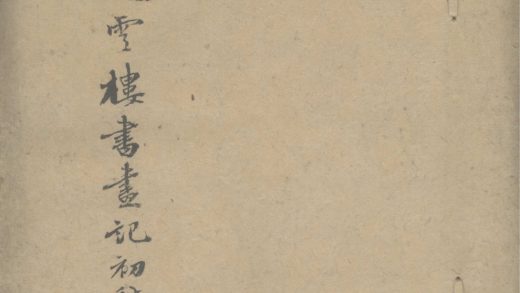 雲樓書畫記初